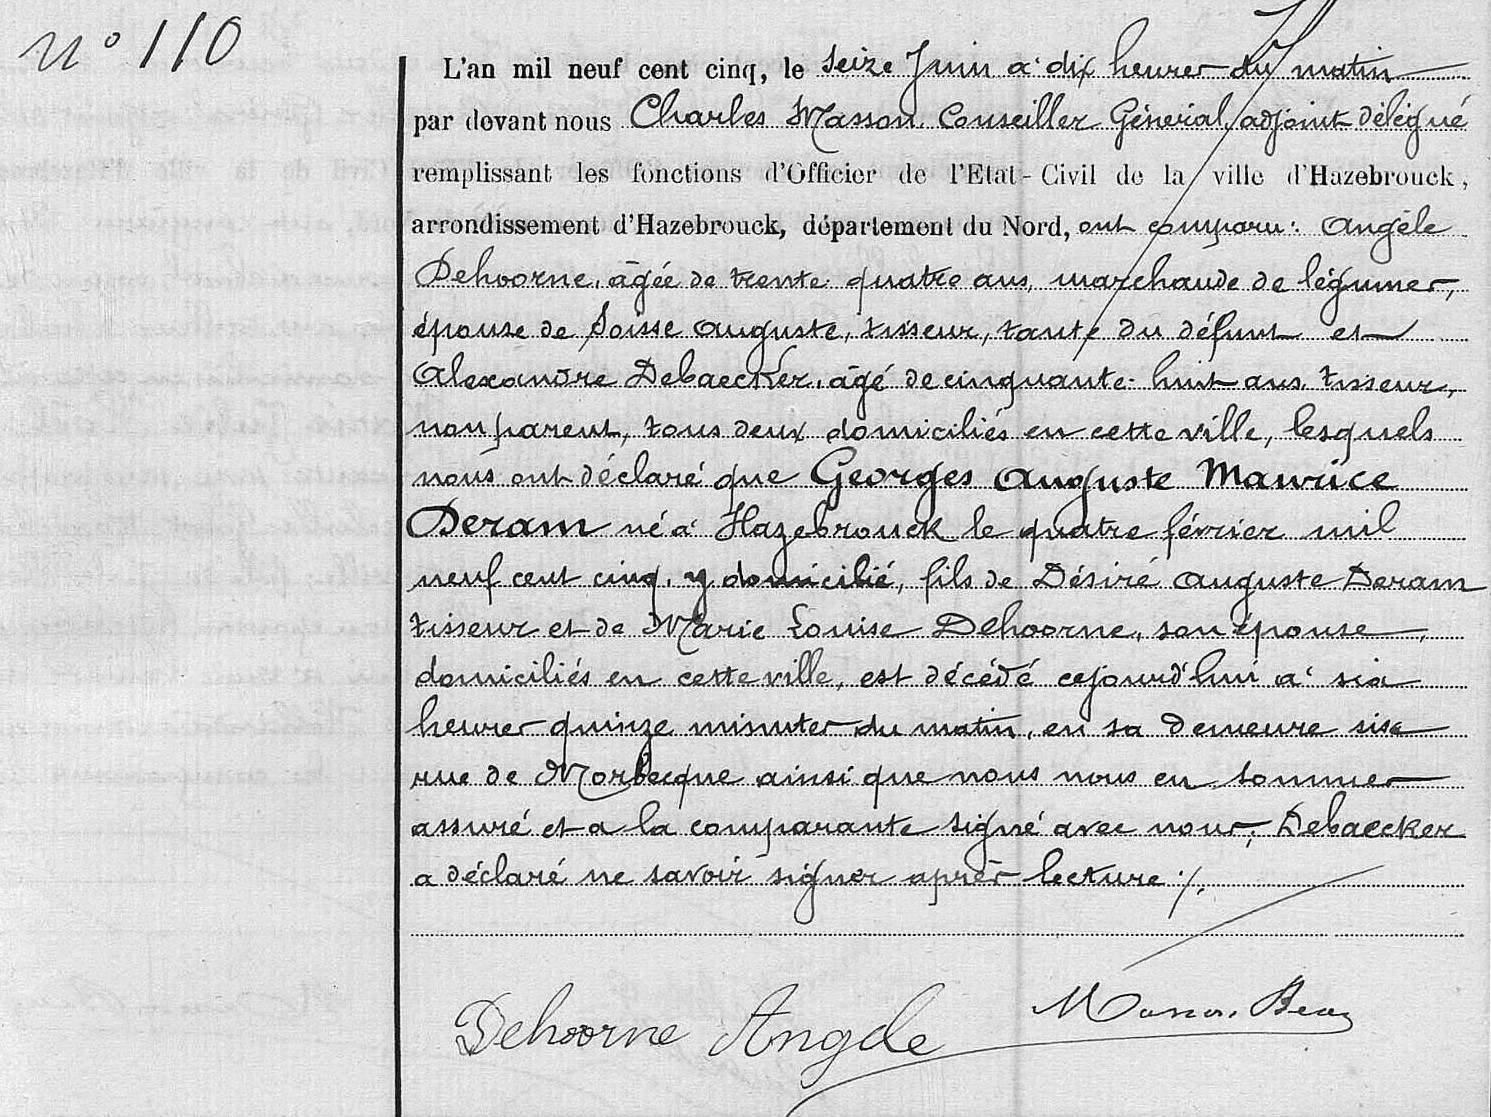 N° 110
L'an mil neuf cent cinq, le Seize Juin à dix heures du matin
par devant nous Charles Masson Conseiller Général, adjoint délégué
remplissant les fonctions d'Officier de l'Etat-Civil de la ville d'Hazebrouck,
arrondissement d'Hazebrouck, département du Nord, ont comparu: Angèle
Dehoorne, âgée de trente quatre ans, marchande de légumes,
épouse de Soisse Auguste, tisseur, tante du défunt et
Alexandre Debaecker, âgé de cinquante-huit ans, tisseur,
non parent, tous deux domiciliés en cette ville, lesquels
nous ont déclaré que Georges Auguste Maurice
Deram né à Hazebrouck le quatre février mil
neuf cent cinq, y domicilié, fils de Désiré Auguste Deram
tisseur et de Marie Louise Dehoorne, son épouse,
domiciliés en cette ville, est décédé cejourd'hui à six
heures quinze minutes du matin, en sa demeure sise
rue de Morbecque ainsi que nous nous en sommes
assuré et a la comparante signé avec nous, Debaecker
a déclaré ne savoir signer après lecture ./.
Dehoorne Angele
Masson